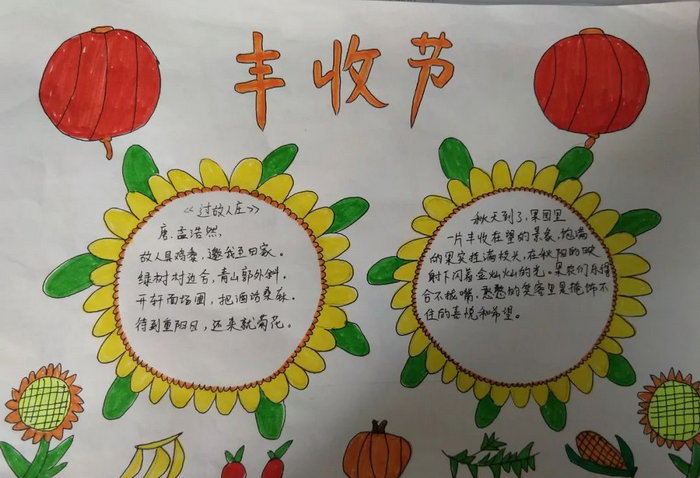 丰收节
《过故人庄》
唐.孟浩然,
故人具鸡黍，邀我至田家。
绿树村边合，青山郭外斜。
开轩面场圃，把酒话桑麻。
待到重阳日，还来就菊花。
秋天到了,果园里
一片丰收在望的景象,饱满
的果实挂满枝头,在秋阳的映
射下闪着金灿灿的光。果农们乐得
合不拢嘴,憨憨的笑容里是掩饰不
住的喜悦和希望。